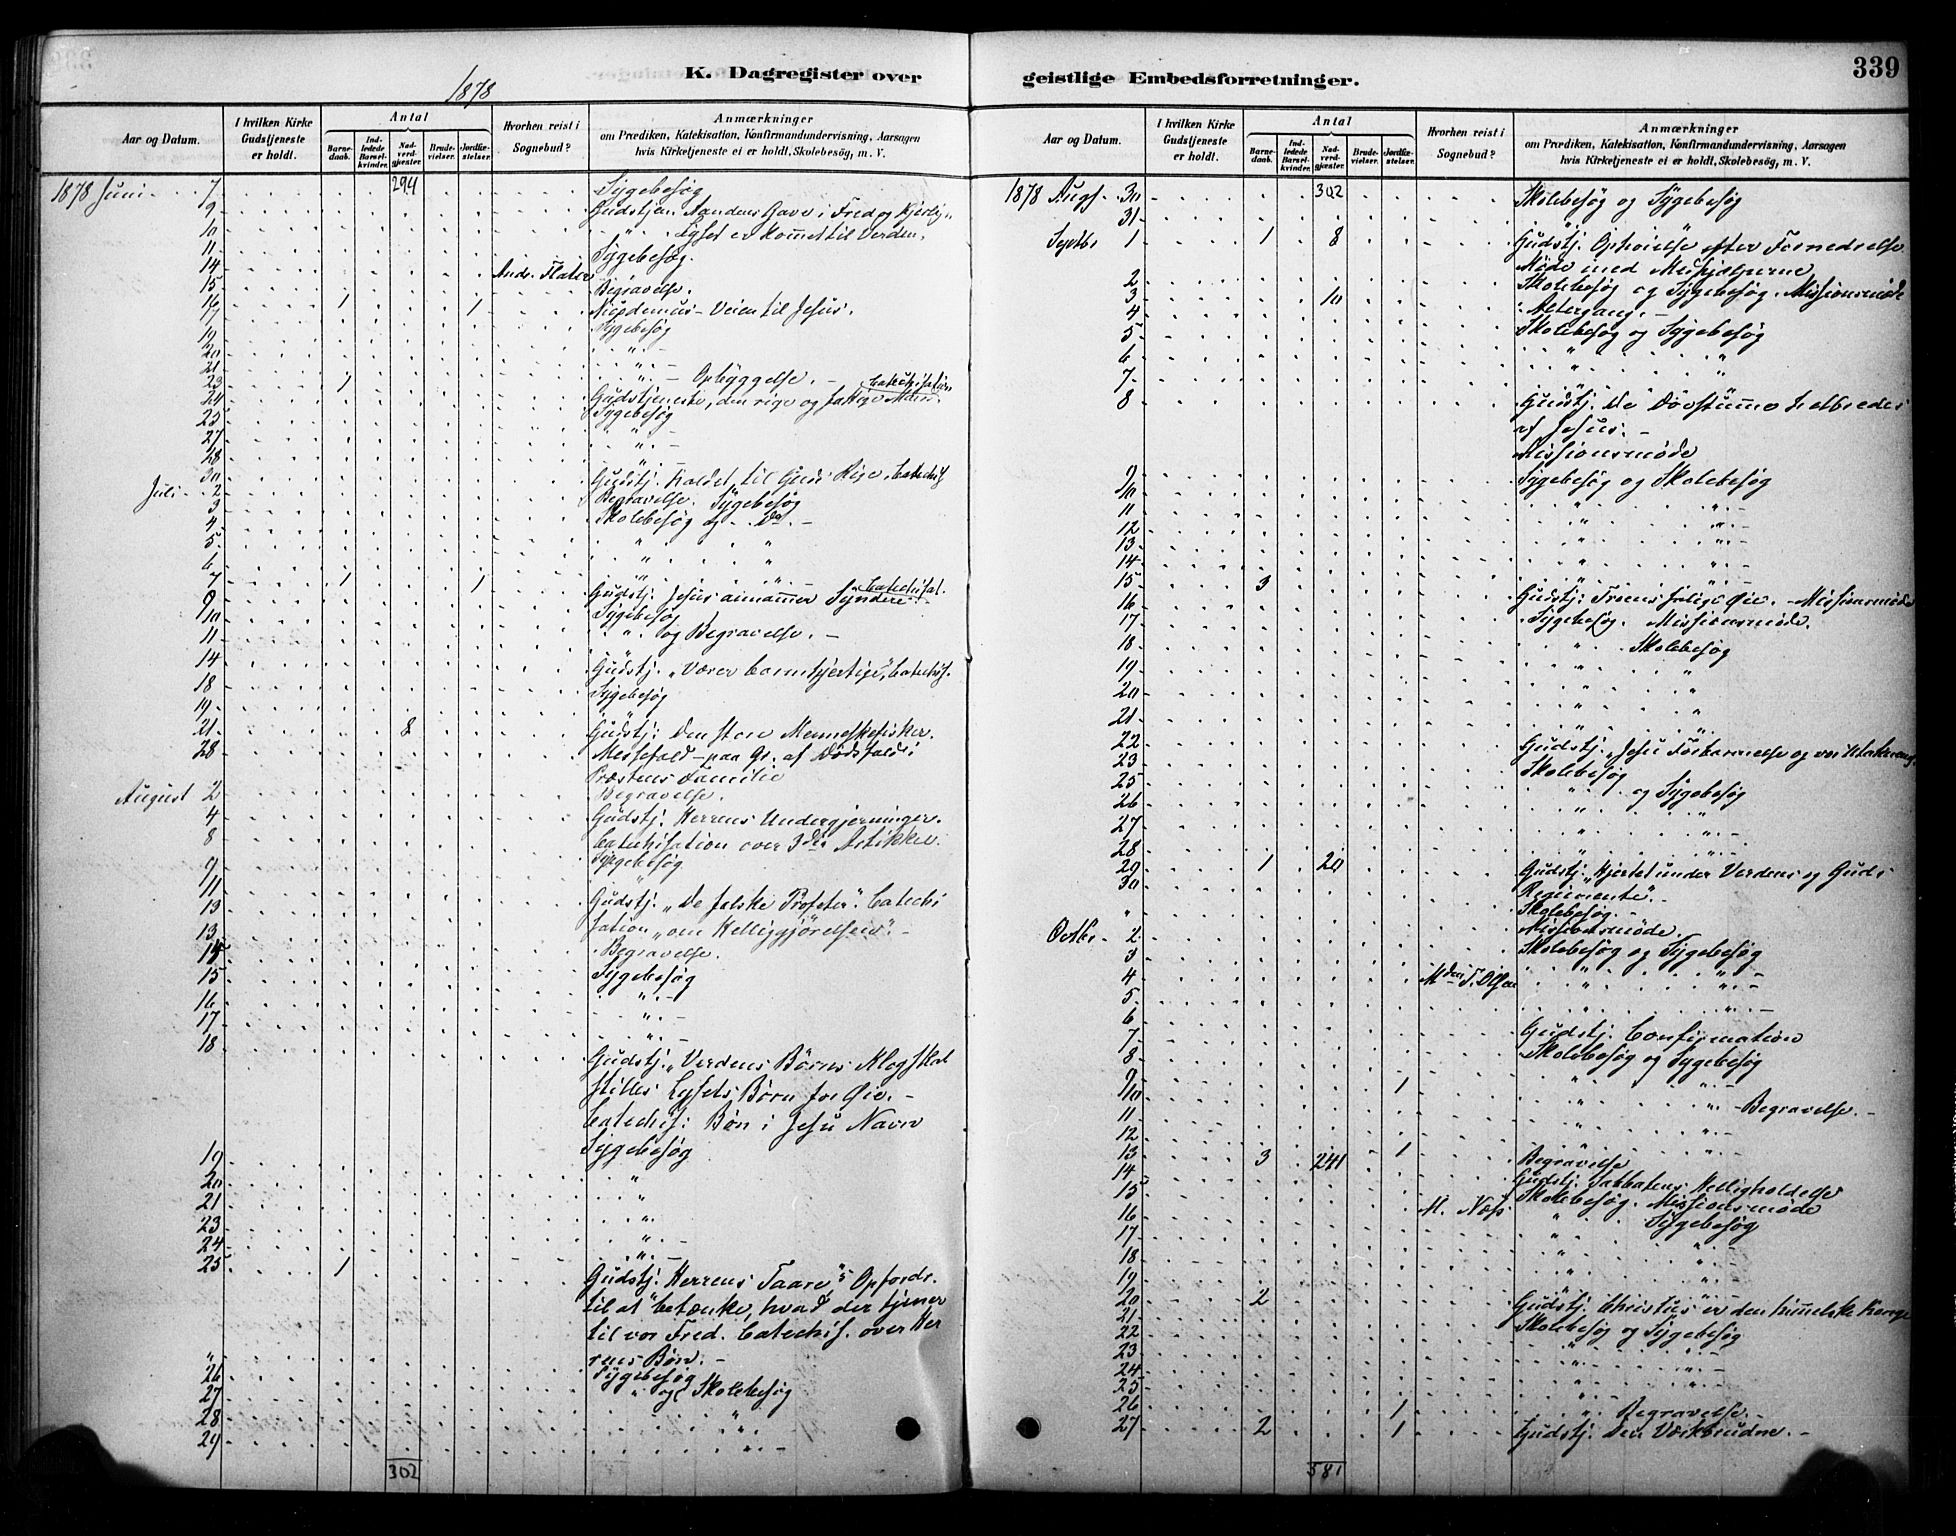 K. Dagregister over
1878
Aar og Datum.
I hvilken Kirke Gudstjeneste er holdt.
Antal
Barnedaab.
Indledede Barselkvinder.
Nadverdgjæster.
Brudevielser.
Jordfæstelser.
Hvorhen reist i Sognebud?
Anmærkninger
om Prædiken, Katekisation, Konfirmandundervisning, Aarsagen
hvis Kirketjeneste ei er holdt, Skolebesøg, m. V.
1878 Juni 7 294 Sygebesøg
9 Gudstjen. Aandens Gave i Fred og Kjærlig
10 " Lyset er kommet til Verden.
11 Sygebesøg.
14 Andr.
15 Begravelse.
16 1 1 Nicodemus - Veien til Jesus.
17 Sygebesøg
19 "
20
21 " Opbyggelse.
23 1 Gudstjeneste, den rige og fattige Mand. Catechisation
24 Sygebesøg
25
27 "
28
30 Gudstj. Kaldet til Guds Rige. Catechis.
Juli 2 Begravelse. Sygebesøg
3 Skolebesøg og Do
4 " "
5 " "
6
7 1 1 Gudstj. Jesus annammer Syndere. Catechisat.
9 Sygebesøg
10 " og Begravelse.
11
14 Gudstj. "Værer barmhjertige", Catechis.
18 Sygebesøg
19 "
21 8 Gudstj. Den store Menneskefisker.
28 Messefald - paa Gr. af Dødsfald i
Præstens Familie
August 2 Begravelse.
4 Gudstj. Herrens Undergjerninger.
Catechisation over 3die Artikkel.
8 Sygebesøg
9 "
11 Gudstj. "De falske Profeter". Catechi
sation "om Helliggjörelsen".
13 Begravelse.
13 Sygebesøg
14 "
15 "
16
17
18 Gudstj. "Verdens Børns Klogskab
stilles Lysets Børn for Øie.
Catechis: Bøn i Jesu Navn
19 Sygebesøg
20 "
21 "
23 "
24 "
25 1 Gudstj. Herrens Taare, Opfordr.
til at "betænke, hvad der tjener
til vor Fred. Catechis. over Her
" rens Bøn.
26 Sygebesøg
27 " og Skolebesøg
28 "
29 "
302
geistlige Embedsforretninger.
339
Aar og Datum.
I hvilken Kirke Gudstjeneste er holdt.
Antal
Barnedaab.
Indledede Barselkvinder.
Nadverdgjæster.
Brudevielser.
Jordfæstelser.
Hvorhen reist i Sognebud?
Anmærkninger
om Prædiken, Katekisation, Konfirmandundervisning, Aarsagen
hvis Kirketjeneste ei er holdt, Skolebesøg, m. V.
1878 Augs. 30 302 Skolebesøg og Sygebesøg
31 "
Septbr 1 1 8 Gudstj. Ophøielse efter Fornedrelse
Møde med
2 Skolebesøg og Sygebesøg. Missionsmøde
3 10 Altergang.
4 Skolebesøg og Sygebesøg
5 " "
6 " "
7
8 Gudstj. De Døvstumme helbredes
af Jesus.
Missionsmøde
9 Sygebesøg og Skolebesøg
10 " "
11 " "
12 " "
13 " "
14 " "
15 3 Gudstj: Troens salige Øie. Missionsmøde
16 Sygebesøg. Missionsmøde.
17 " Skolebesøg
18 "
19 " "
20 " "
21 " "
22 Gudstj. "Jesu Forbarmelse og vor
23 Skolebesøg
25 " og Sygebesøg
26 " "
27 " "
28 " "
29 1 20 Gudstj. "Hjertet under Verdens og Guds
Regimente".
30 Skolebesøg.
" Missionsmøde.
Octbr 2 Skolebesøg og Sygebesøg
3 " "
4 " "
5
6 Gudstj. Confirmation
7 Skolebesøg og Sygebesøg
8 " "
9 1 " " Begravelse.
10
11 " "
12 1 Begravelse
13 3 241 Gudstj. Sabbatens Helligholdelse
14 Skolebesøg. Missionsmøde
15 M. Næss " Sygebesøg
16 " "
17 " "
18 " "
19 " "
20 2 Gudstj. Christus er den himmelske Konge
21 Skolebesøg og Sygebesøg
22 " "
23 " "
24 "
25
26 1 " Begravelse.
27 2 1 Gudstj. Den Værkbrudne.
581